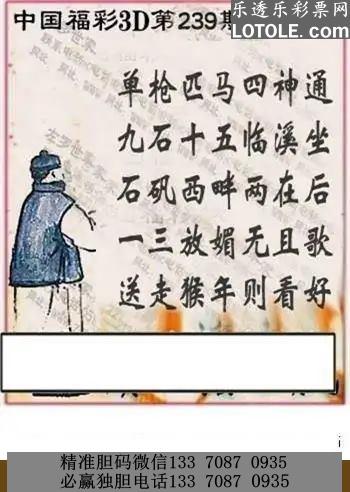 乐透乐彩票网
LOTOLE.COM
中国福彩3D第239期
单枪匹马四神通
九石十五临溪坐
石矶西畔两在后
一三放媚无且歌
送走猴年则看好
精准胆码微信133 7087 0935
必赢独胆电话133 7087 0935